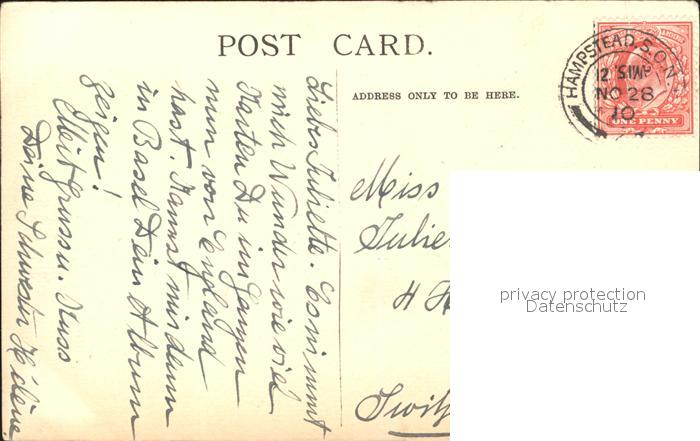 POST CARD.
ADDRESS ONLY TO BE HERE.
HAMPSTEAD. S.O. N.W
12.15 PM
NO 28
10
ONE PENNY
Liebe Juliette. Es nimmt
mich Wunder wie viel
Karten Du im Ganzen
nun von England
hast. Kannst mir dann
in Basel Dein Album
zeigen!
Mit Gruss u. Kuss
Deine Schwester Hélène
Miss
Julie
4 H
Switz
privacy protection
Datenschutz